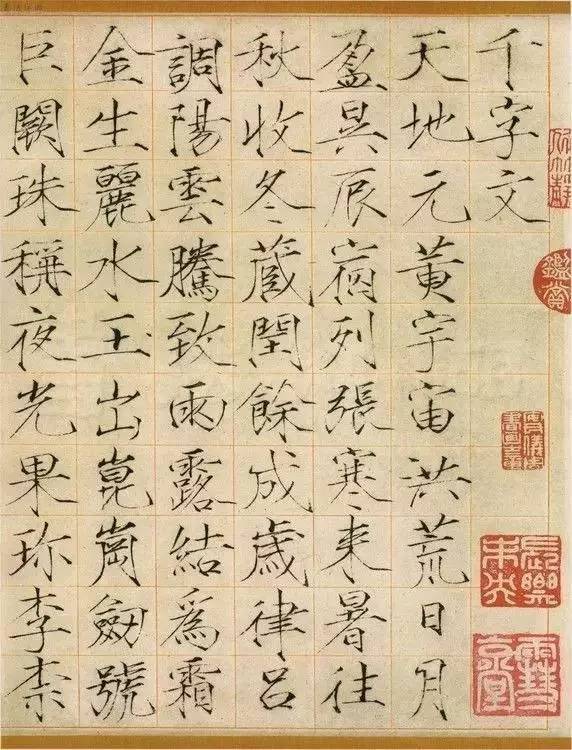 千字文
天地元黄宇宙洪荒日月
盈昃辰宿列張寒来暑往
秋收冬蔵閏餘成歳律吕
調陽雲騰致雨露結為霜
金生麗水玉出崑崗劔號
巨闕珠稱夜光果珎李柰
鑑賞